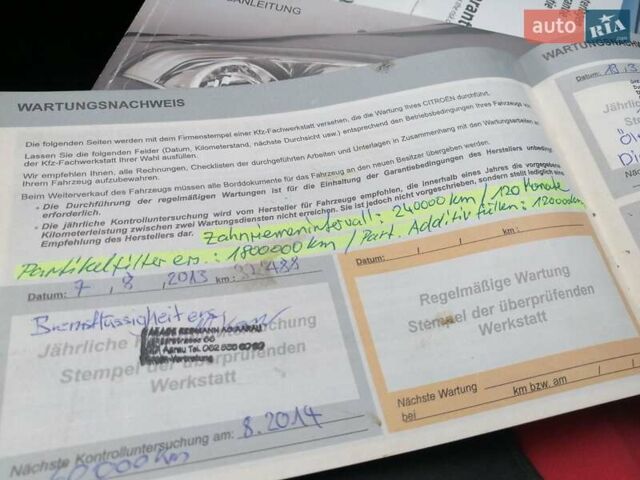 ANLEITUNG
auto RIA
.com
WARTUNGSNACHWEIS
Die folgenden Seiten werden mit dem Firmenstempel einer Kfz-Fachwerkstatt versehen, die die Wartung Ihres CITROËN durchführt.
Lassen Sie die folgenden Felder (Datum, Kilometerstand, nächste Durchsicht usw.) entsprechend den Betriebsbedingungen Ihres Fahrzeugs
der Kfz-Fachwerkstatt Ihrer Wahl ausfüllen.
Wir empfehlen Ihnen, alle Rechnungen, Checklisten der durchgeführten Arbeiten und Unterlagen in Zusammenhang mit den Wartungsarbeiten
Ihrem Fahrzeug aufzubewahren.
Beim Weiterverkauf des Fahrzeugs müssen alle Borddokumente für das Fahrzeug an den neuen Besitzer übergeben werden.
- Die Durchführung der regelmäßigen Wartungen ist für die Einhaltung der Garantiebedingungen des Herstellers unbedingt
erforderlich.
- Die jährliche Kontrolluntersuchung wird vom Hersteller für Fahrzeuge empfohlen, die innerhalb eines Jahres die vorgegebene
Kilometerleistung zwischen zwei Wartungsdiensten nicht erreichen. Sie ist jedoch nicht vorgeschrieben, sondern stellt lediglich eine
Empfehlung des Herstellers dar. Zahnriemenintervall: 240000 km / 120 Monate
Partikelfilter ers.: 1800000 km / Part. Additiv füllen: 120000km
Datum: 7 , 8 , 2013 km: 488
Bremsflüssigkeit ers
Jährliche Kontrolluntersuchung
Stempel der überprüfenden
Werkstatt
Nächste Kontrolluntersuchung am: 8.2014
60000km
Datum: / / km:
Regelmäßige Wartung
Stempel der überprüfenden
Werkstatt
Nächste Wartung / /
bei km bzw. am
WARTUNGSNACH
Datum: 13.3
Jährliche
Stempel
W